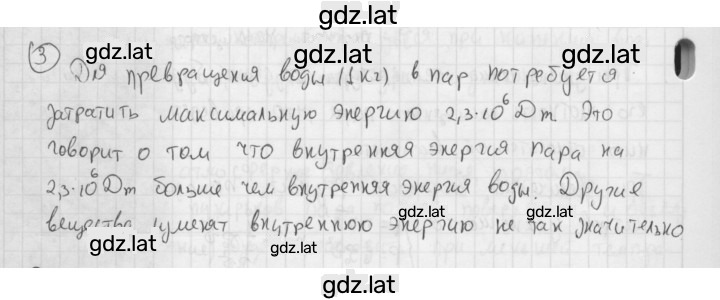 gdz.lat
gdz.lat
③ Для превращения воды (1 кг) в пар потребуется
gdz.lat
gdz.lat
затратить максимальную энергию 2,3·10⁶ Дж. Это
говорит о том что внутренняя энергия пара на
2,3·10⁶ Дж больше чем внутренняя энергия воды. Другие
gdz.lat
gdz.lat
вещества имеют внутреннюю энергию не так значительно
gdz.lat
gdz.lat